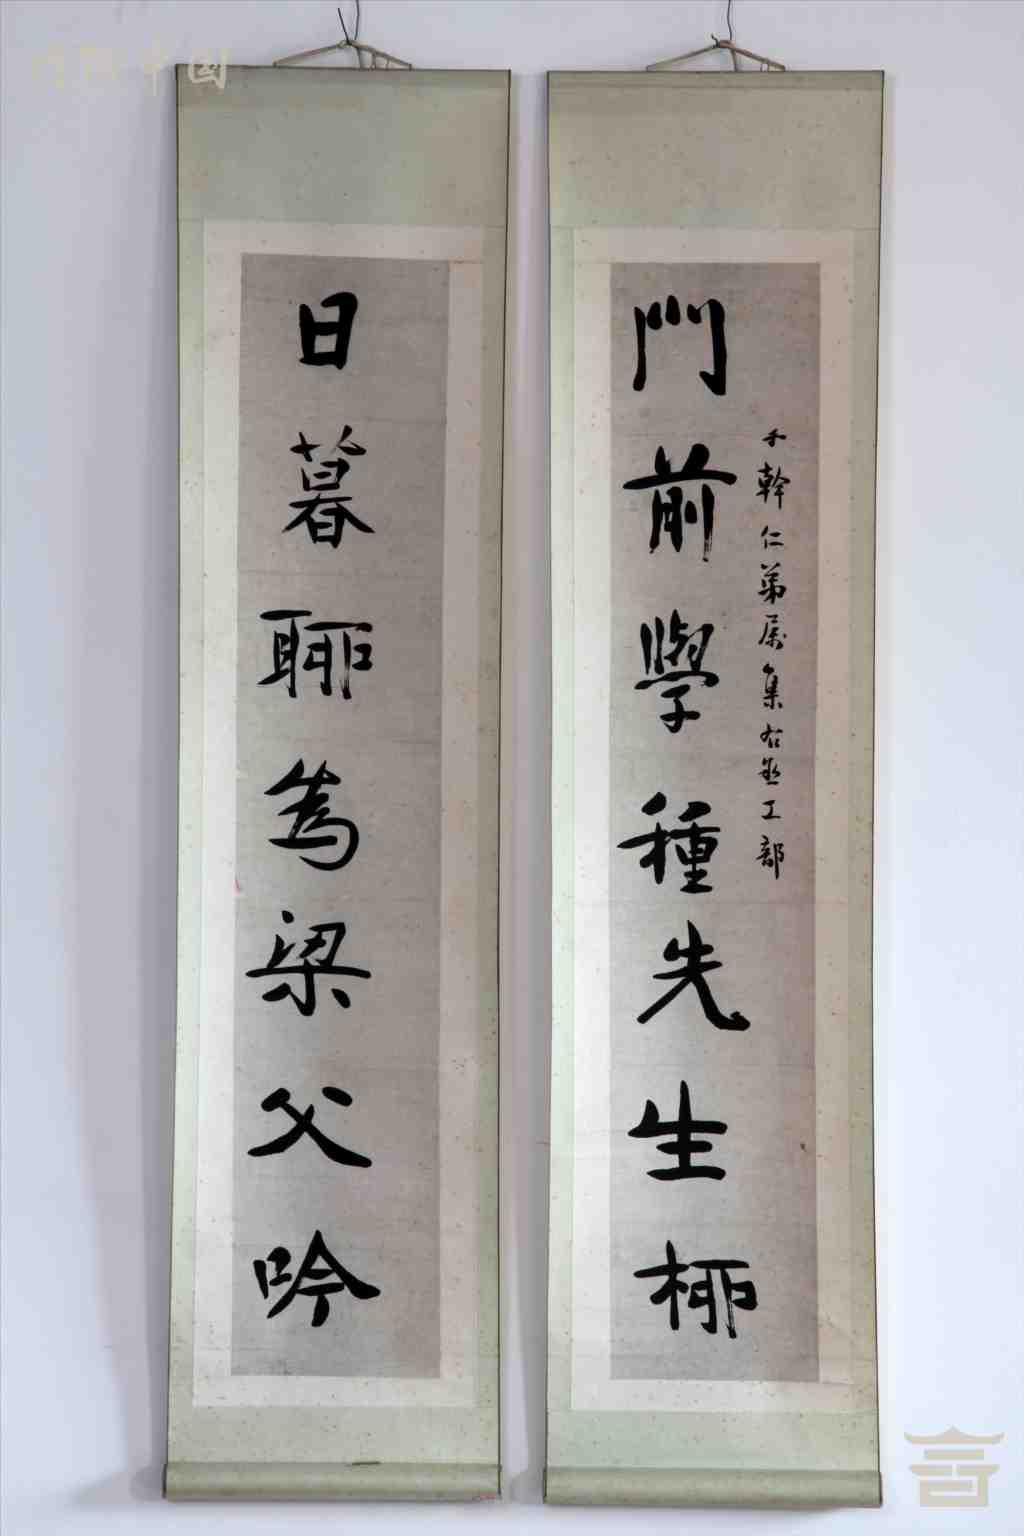 門前學種先生柳
千幹仁弟屬集右丞工部
日暮聊為梁父吟